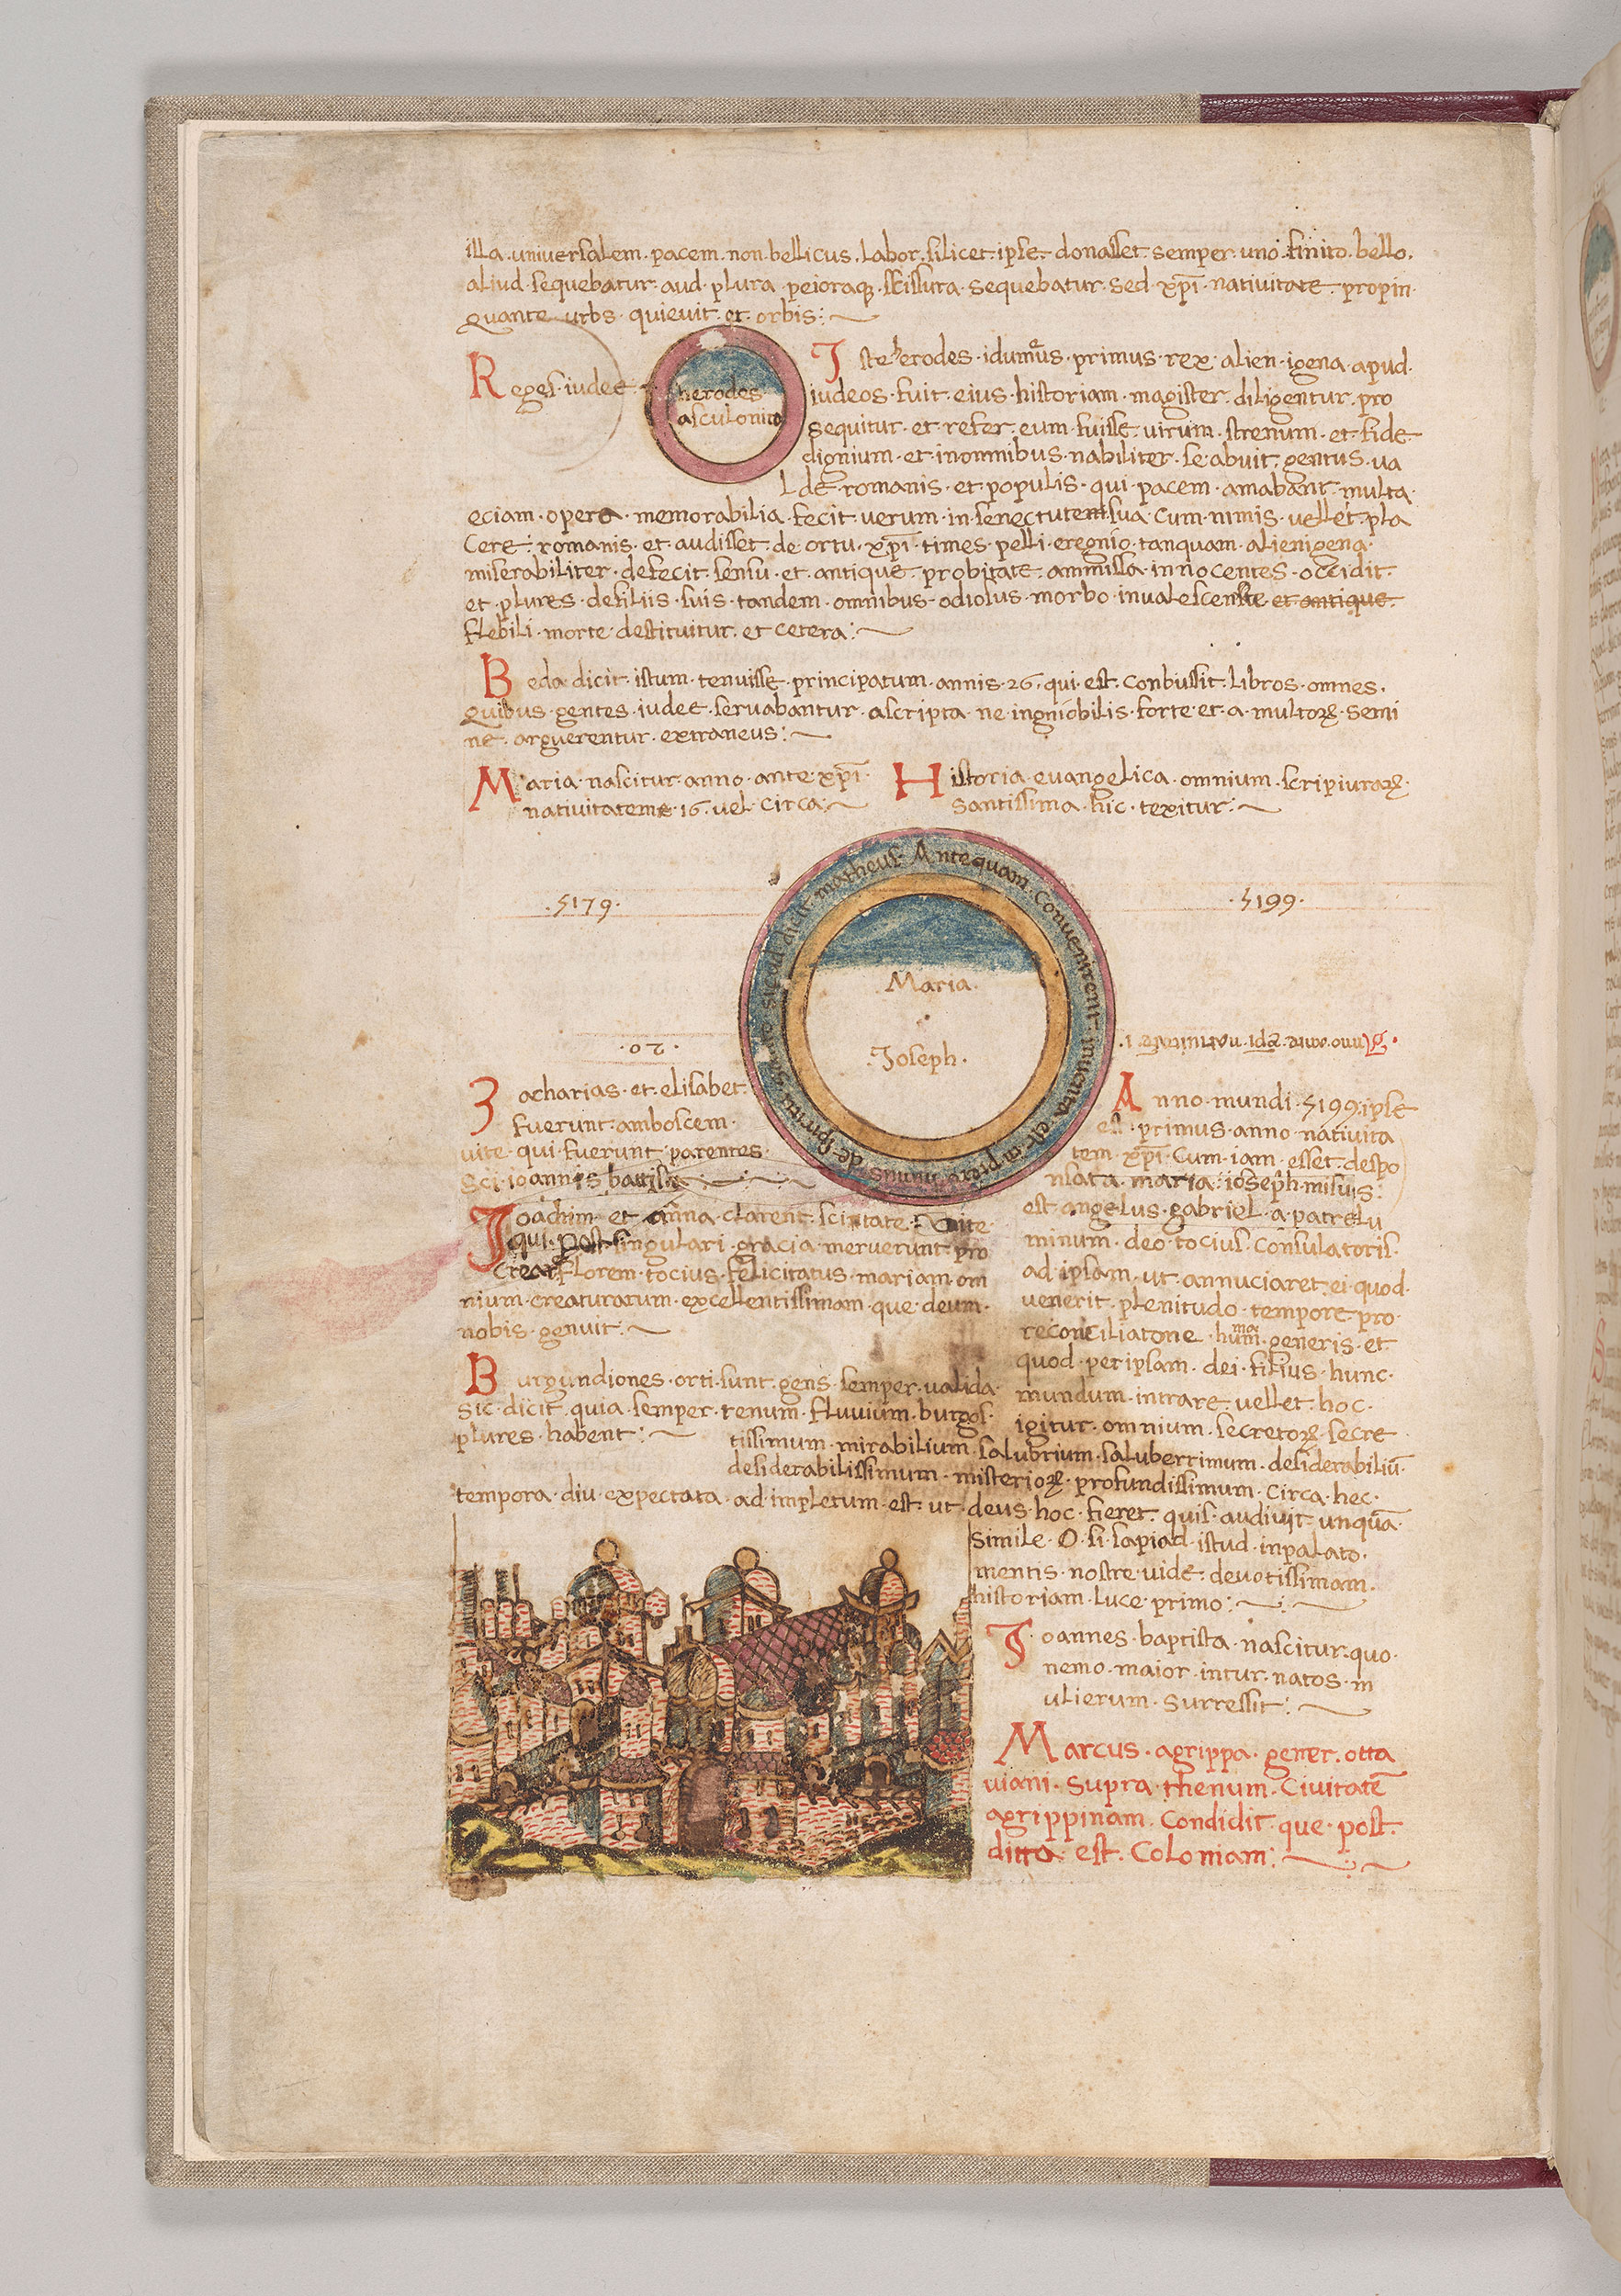 illa·universalem·pacem·non·bellicus·labor·silicet·ipse·donasset·semper·uno·finito·bello·
aliud·sequebatur·aud·plura·peioraq3·scissura·sequebatur·sed·xp̄i·nativitate·propin
quante·urbs·quievit·et·orbis:~
Reges·iudee·
herodes
asculonita
Iste herodes·idumeus·primus·rex·alien·igena·apud·
iudeos·fuit·eius·historiam·magister·diligentur·pro
sequitur·et·refer·eum·fuisse·uirum·strenum·et·fide
dignium·et·inomnibus·nabiliter·se·abuit·gentus·ua
lde·romanis·et·populis·qui·pacem·amabant·multa·
eciam·opera·memorabilia·fecit·verum·in·senectutem·sua·cum·nimis·vellet·pla
cere·romanis·et·audisset·de·ortu·xp̄i·times·pelli·eregnio·tanquam·alienigena·
miserabiliter·defecit·sensu·et·antique·probitate·ammissa·innocentes·occidit·
et·plures·defiliis·suis·tandem·omnibus·odiosus·morbo·invalescente et antique·
flebili·morte·destituitur·et cetera:~
Beda·dicit·istum·tenuisse·principatum·annis·26·qui·est·conbussit·libros·omnes·
quibus·gentes·iudee·servabantur·ascripta·ne·ingniobilis·forte·et·a·multoꝝ·semi
ne·arguerentur·extraneus:~
Maria·nascitur·anno·ante·xp̄i·
nativitatem·16·vel·circa:~
Historia·evangelica·omnium·scripiuraꝝ·
santissima·hic·texitur:~
·5179·
·5199·
Antequam·convenirent·inventa·est·in·utero·habens·de·spiritu·sancto·sicud·dicit·matheus·
Maria·
·Joseph·
·20·
Anno·ante·xp̄i·nativitate·1·
Zacharias·et·elisabet·
fuerunt·amboscem·
vite·qui·fuerunt·parentes·
Sci·ioannis battista
Joachim·et·anna·clarent·scintate·vite·
qui·post·singulari·gracia·meruerunt·pro
crear florem·tocius·felicitatus·mariam·om
nium·creaturarum·excellentissimam·que·deum·
nobis·genuit:~
Burgundiones·orti·sunt·gens·semper·valida·
sic·dicit·quia·semper·renum·fluvium·burgos·
plures·habent:~
Anno·mundi·5199·ipse
est·primus·anno·nativita
tem·xp̄i·cum·iam·esset·despo
nsata·maria·ioseph·misus:
est·angelus·gabriel·a·patrelu
minum·deo·tocius·consulatoris·
ad·ipsam·ut·annuciaret·ei·quod·
venerit·plenitudo·tempore·pro·
reconciliatone·humma·generis·et·
quod·peripsam·dei·filius·hunc·
mundum·intrare·vellet·hoc·
igitur·omnium·secretoꝝ·secre
tissimum·mirabilium·salubrium·saluberrimum·desiderabiliū·
desiderabilissimum·misterioꝝ·profundissimum·circa·hec·
tempora·diu·expectata·ad·impletum·est·ut·deus·hoc·fieret·quis·audivit·unquā·
simile·O·si·sapiad·istud·inpalato·
mentis·nostre·vide·devotissimam·
historiam·luce·primo:~
Joannes·baptista·nascitur·quo·
nemo·maior·intur·natos·m
ulierum·surressit:~
Marcus·agrippa·gener·otta
viani·supra·rhenum·civitatē
agrippinam·condidit·que·post·
ditta·est·coloniam:~